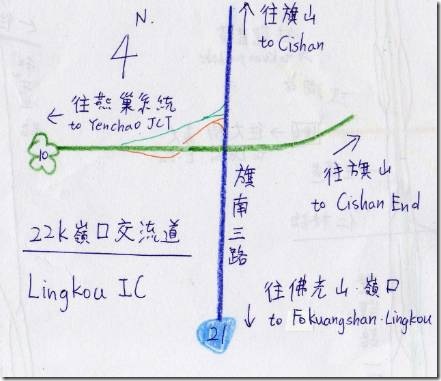 N.
往旗山
to Cishan
往燕巢系統
to Yenchao JCT
10
往旗山
to Cishan End
旗南三路
22K嶺口交流道
Lingkou IC
往佛光山·嶺口
to Fokuangshan·Lingkou
21